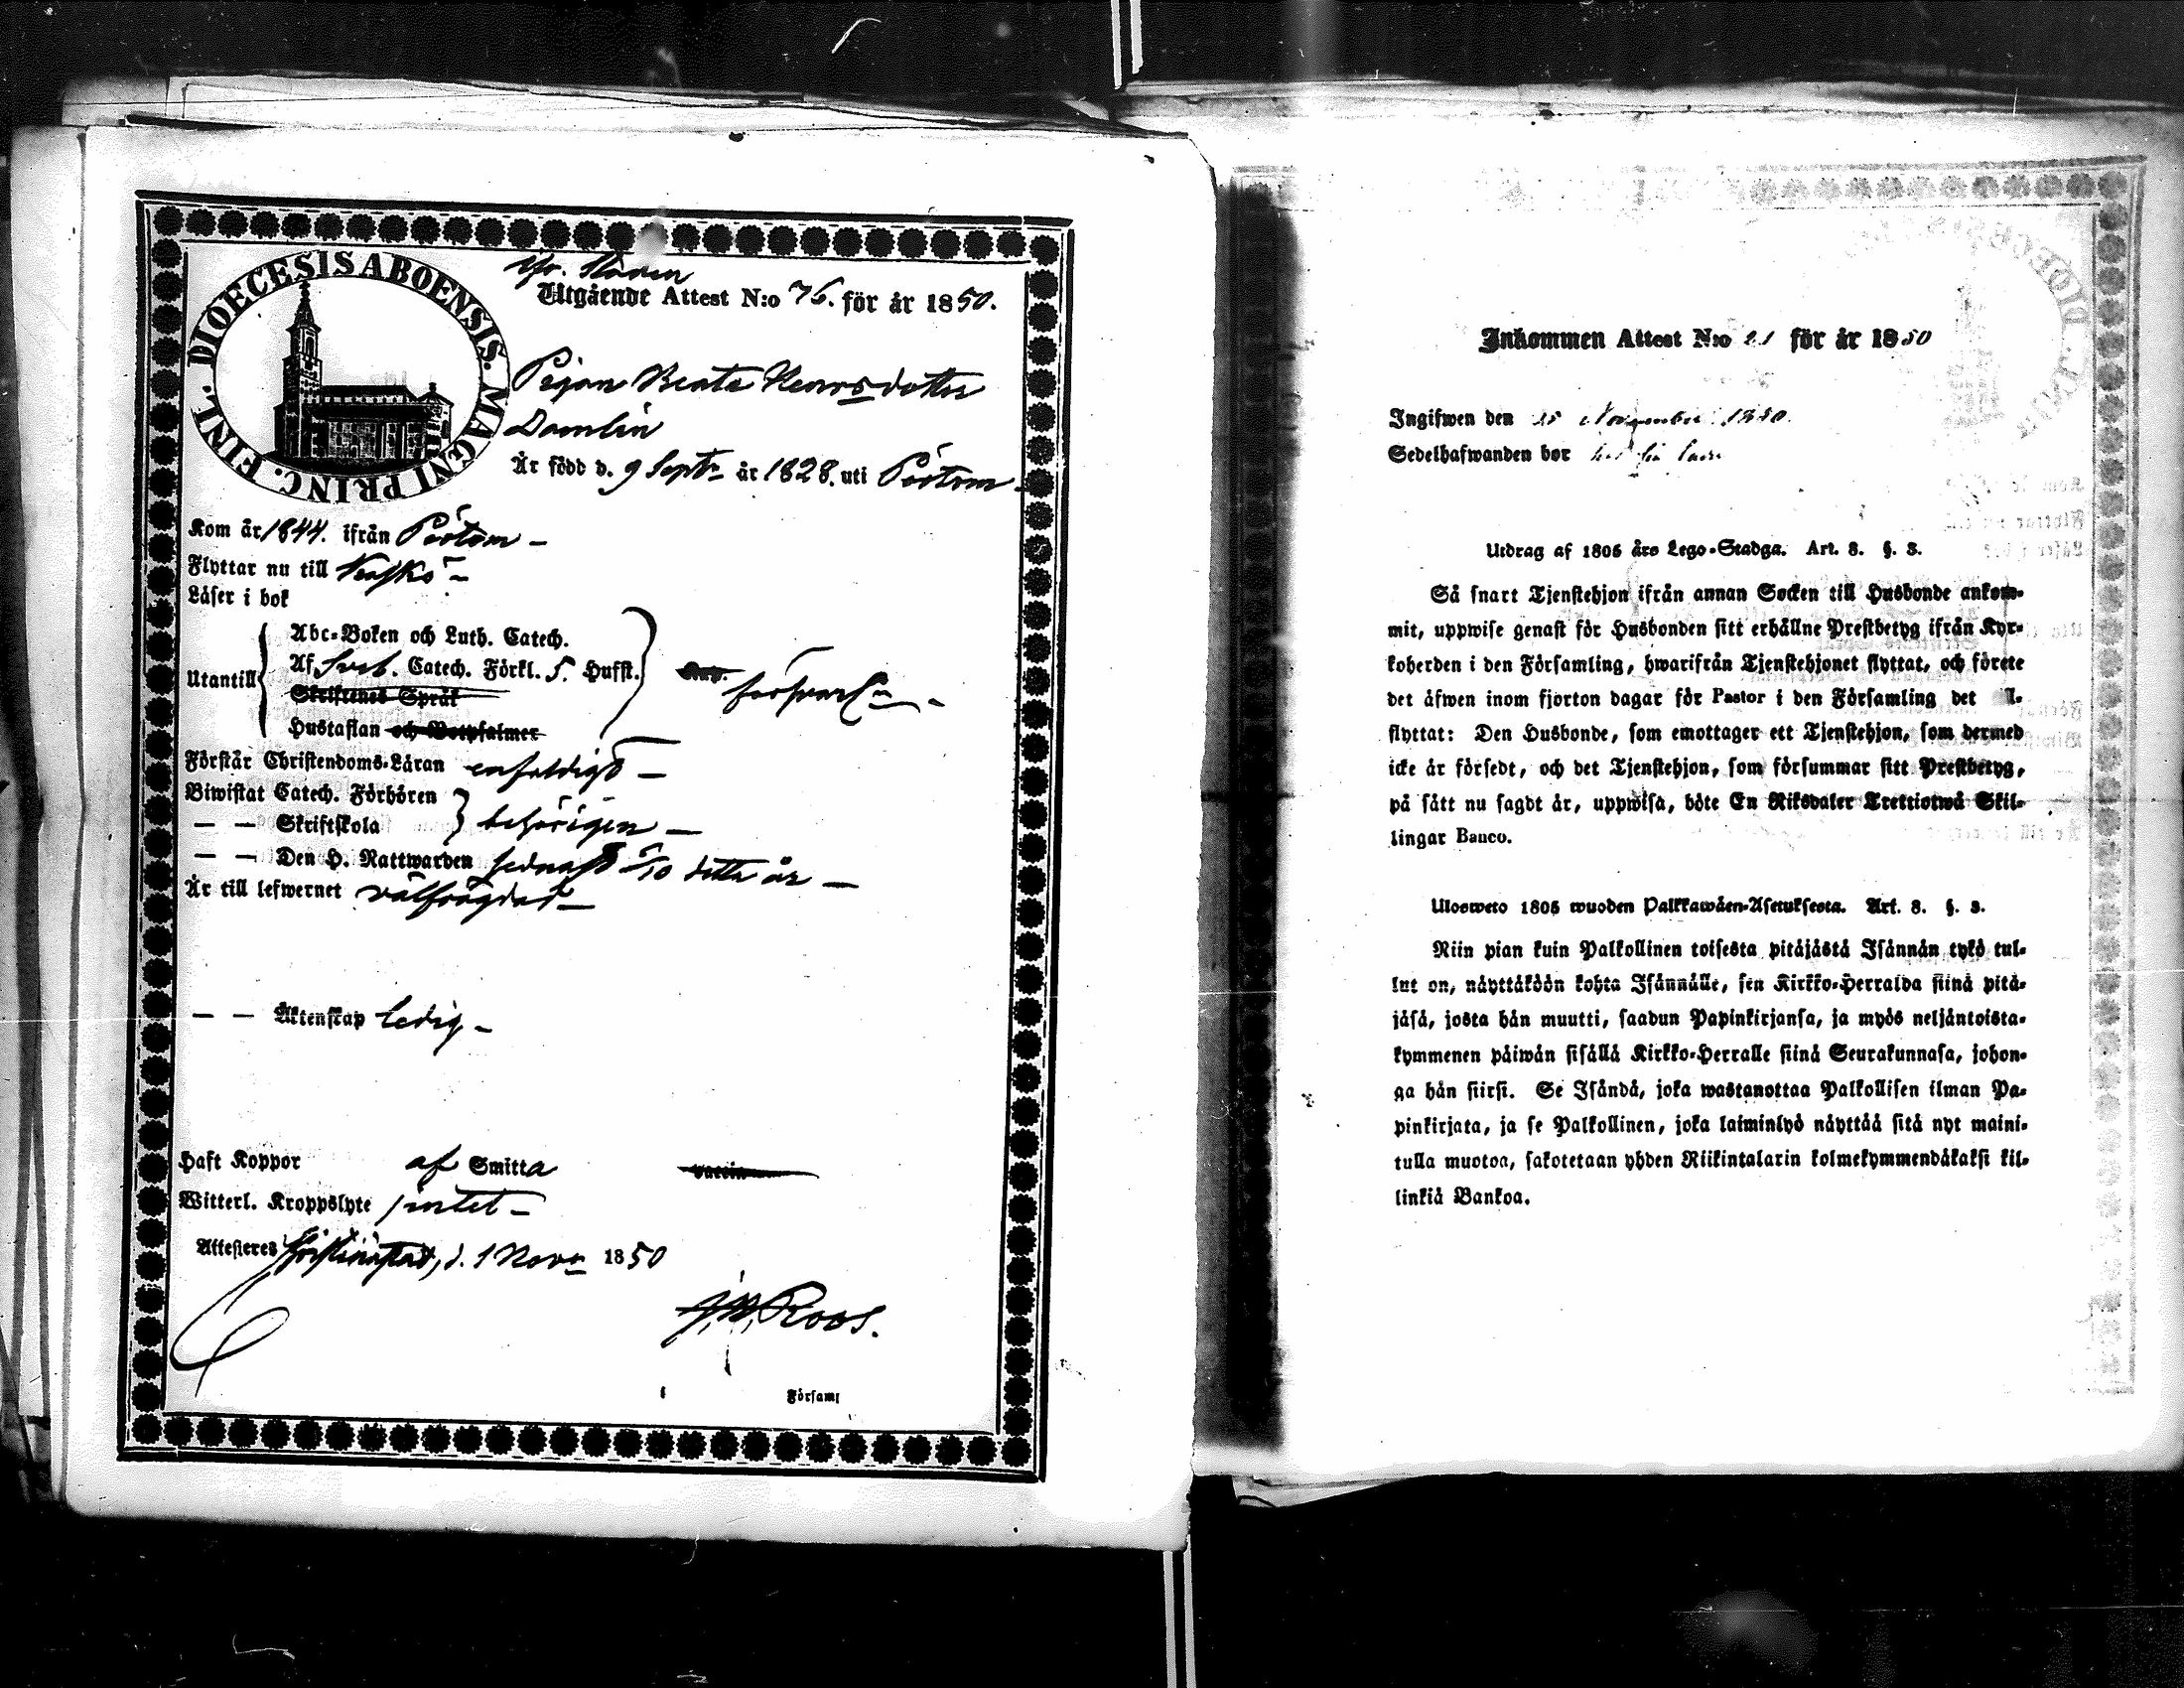 DIOECESIS ABOENSIS. MAGNI PRINC. FINL.
Utgående Attest N:o 76. för år 1850.
Pigan Beata Henricsdotter
Domlin
Är född d. 9 Septr år 1828. uti Pörtom
Kom år 1844. ifrån Pörtom —
Flyttar nu till
Läser i bok
Abc-Boken och Luth. Catech.
Utantill Af Sveb. Catech. Förkl. 5. Hufst. försvarl.
Skriftenes Språk
Hustaflan och Botpsalmer
Förstår Christendoms-Läran enfaldigt —
Biwistat Catech. Förhören
— — Skriftskola behörigen —
— — Den H. Nattwarden sednast detta år —
Är till lefwernet välfrägdad —
— — Äktenskap ledig —
Haft Koppor af Smitta vaccin
Witterl. Kroppslyte intet —
Attesteres Christinestad, d. 1 Novr 1850
Roos.
Församl
Inkommen Attest N:o 21 för år 1850
Ingifwen den November 1850.
Sedelhafwanden bor
Utdrag af 1805 års Lego-Stadga. Art. 3. §. 3.
Så snart Tjenstehjon ifrån annan Socken till Husbonde ankom-
mit, uppwise genast för Husbonden sitt erhållne Prestbetyg ifrån Kyr-
koherden i den Församling, hwarifrån Tjenstehjonet flyttat, och förete
det äfwen inom fjorton dagar för Pastor i den Församling det
flyttat: Den Husbonde, som emottager ett Tjenstehjon, som dermed
icke är försedt, och det Tjenstehjon, som försummar sitt Prestbetyg,
på sätt nu sagdt är, uppwisa, böte En Riksdaler Trettiotwå Skil-
lingar Banco.
Ulosweto 1805 wuoden Palkkawäen-Asetuksesta. Art. 3. §. 3.
Niin pian kuin Palkollinen toisesta pitäjästä Isännän tykö tul-
lut on, näyttäköön kohta Isännälle, sen Kirkko-Herralda siinä pitä-
jäsä, josta hän muutti, saadun Papinkirjansa, ja myös neljäntoista-
kymmenen päiwän sisällä Kirkko-Herralle siinä Seurakunnasa, johon-
ga hän siirsi. Se Isändä, joka wastanottaa Palkollisen ilman Pa-
pinkirjata, ja se Palkollinen, joka laiminlyö näyttää sitä nyt maini-
tulla muotoa, sakotetaan yhden Riikintalarin kolmekymmendäkaksi kil-
linkiä Bankoa.